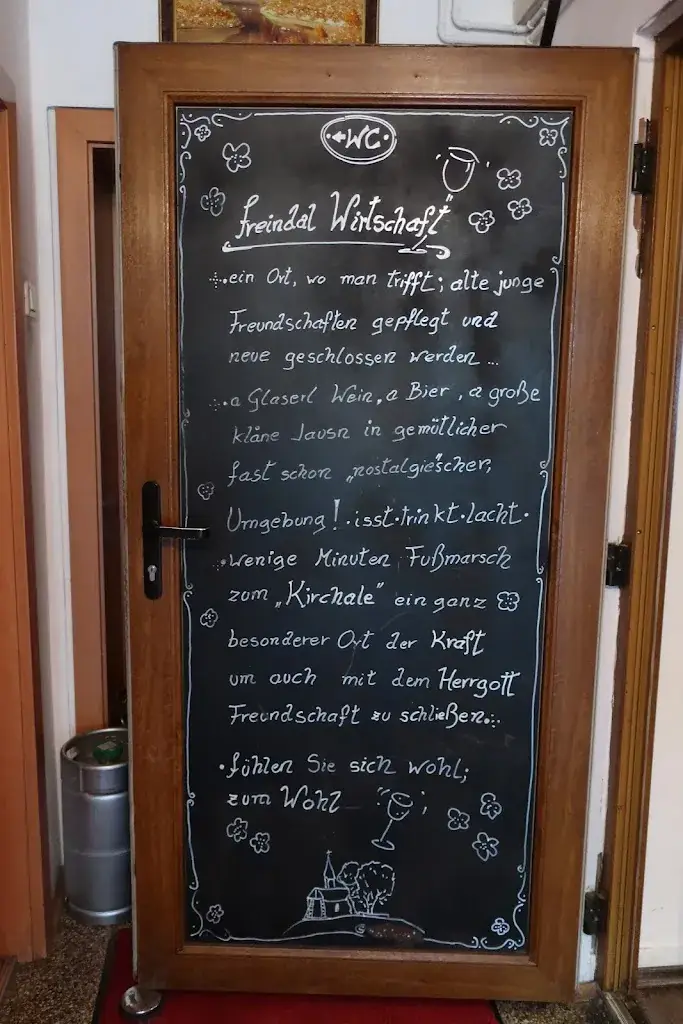 ←WC
freindal Wirtschaft
ein Ort, wo man trifft; alte junge
Freundschaften gepflegt und
neue geschlossen werden ...
a Glaserl Wein, a Bier, a große
kläne Jausn in gemütlicher
fast schon „nostalgie"scher,
Umgebung! · isst · trinkt · lacht ·
wenige Minuten Fußmarsch
zum „Kirchale" ein ganz
besonderer Ort der Kraft
um auch mit dem Herrgott
Freundschaft zu schließen.
· fühlen Sie sich wohl;
zum Wohl